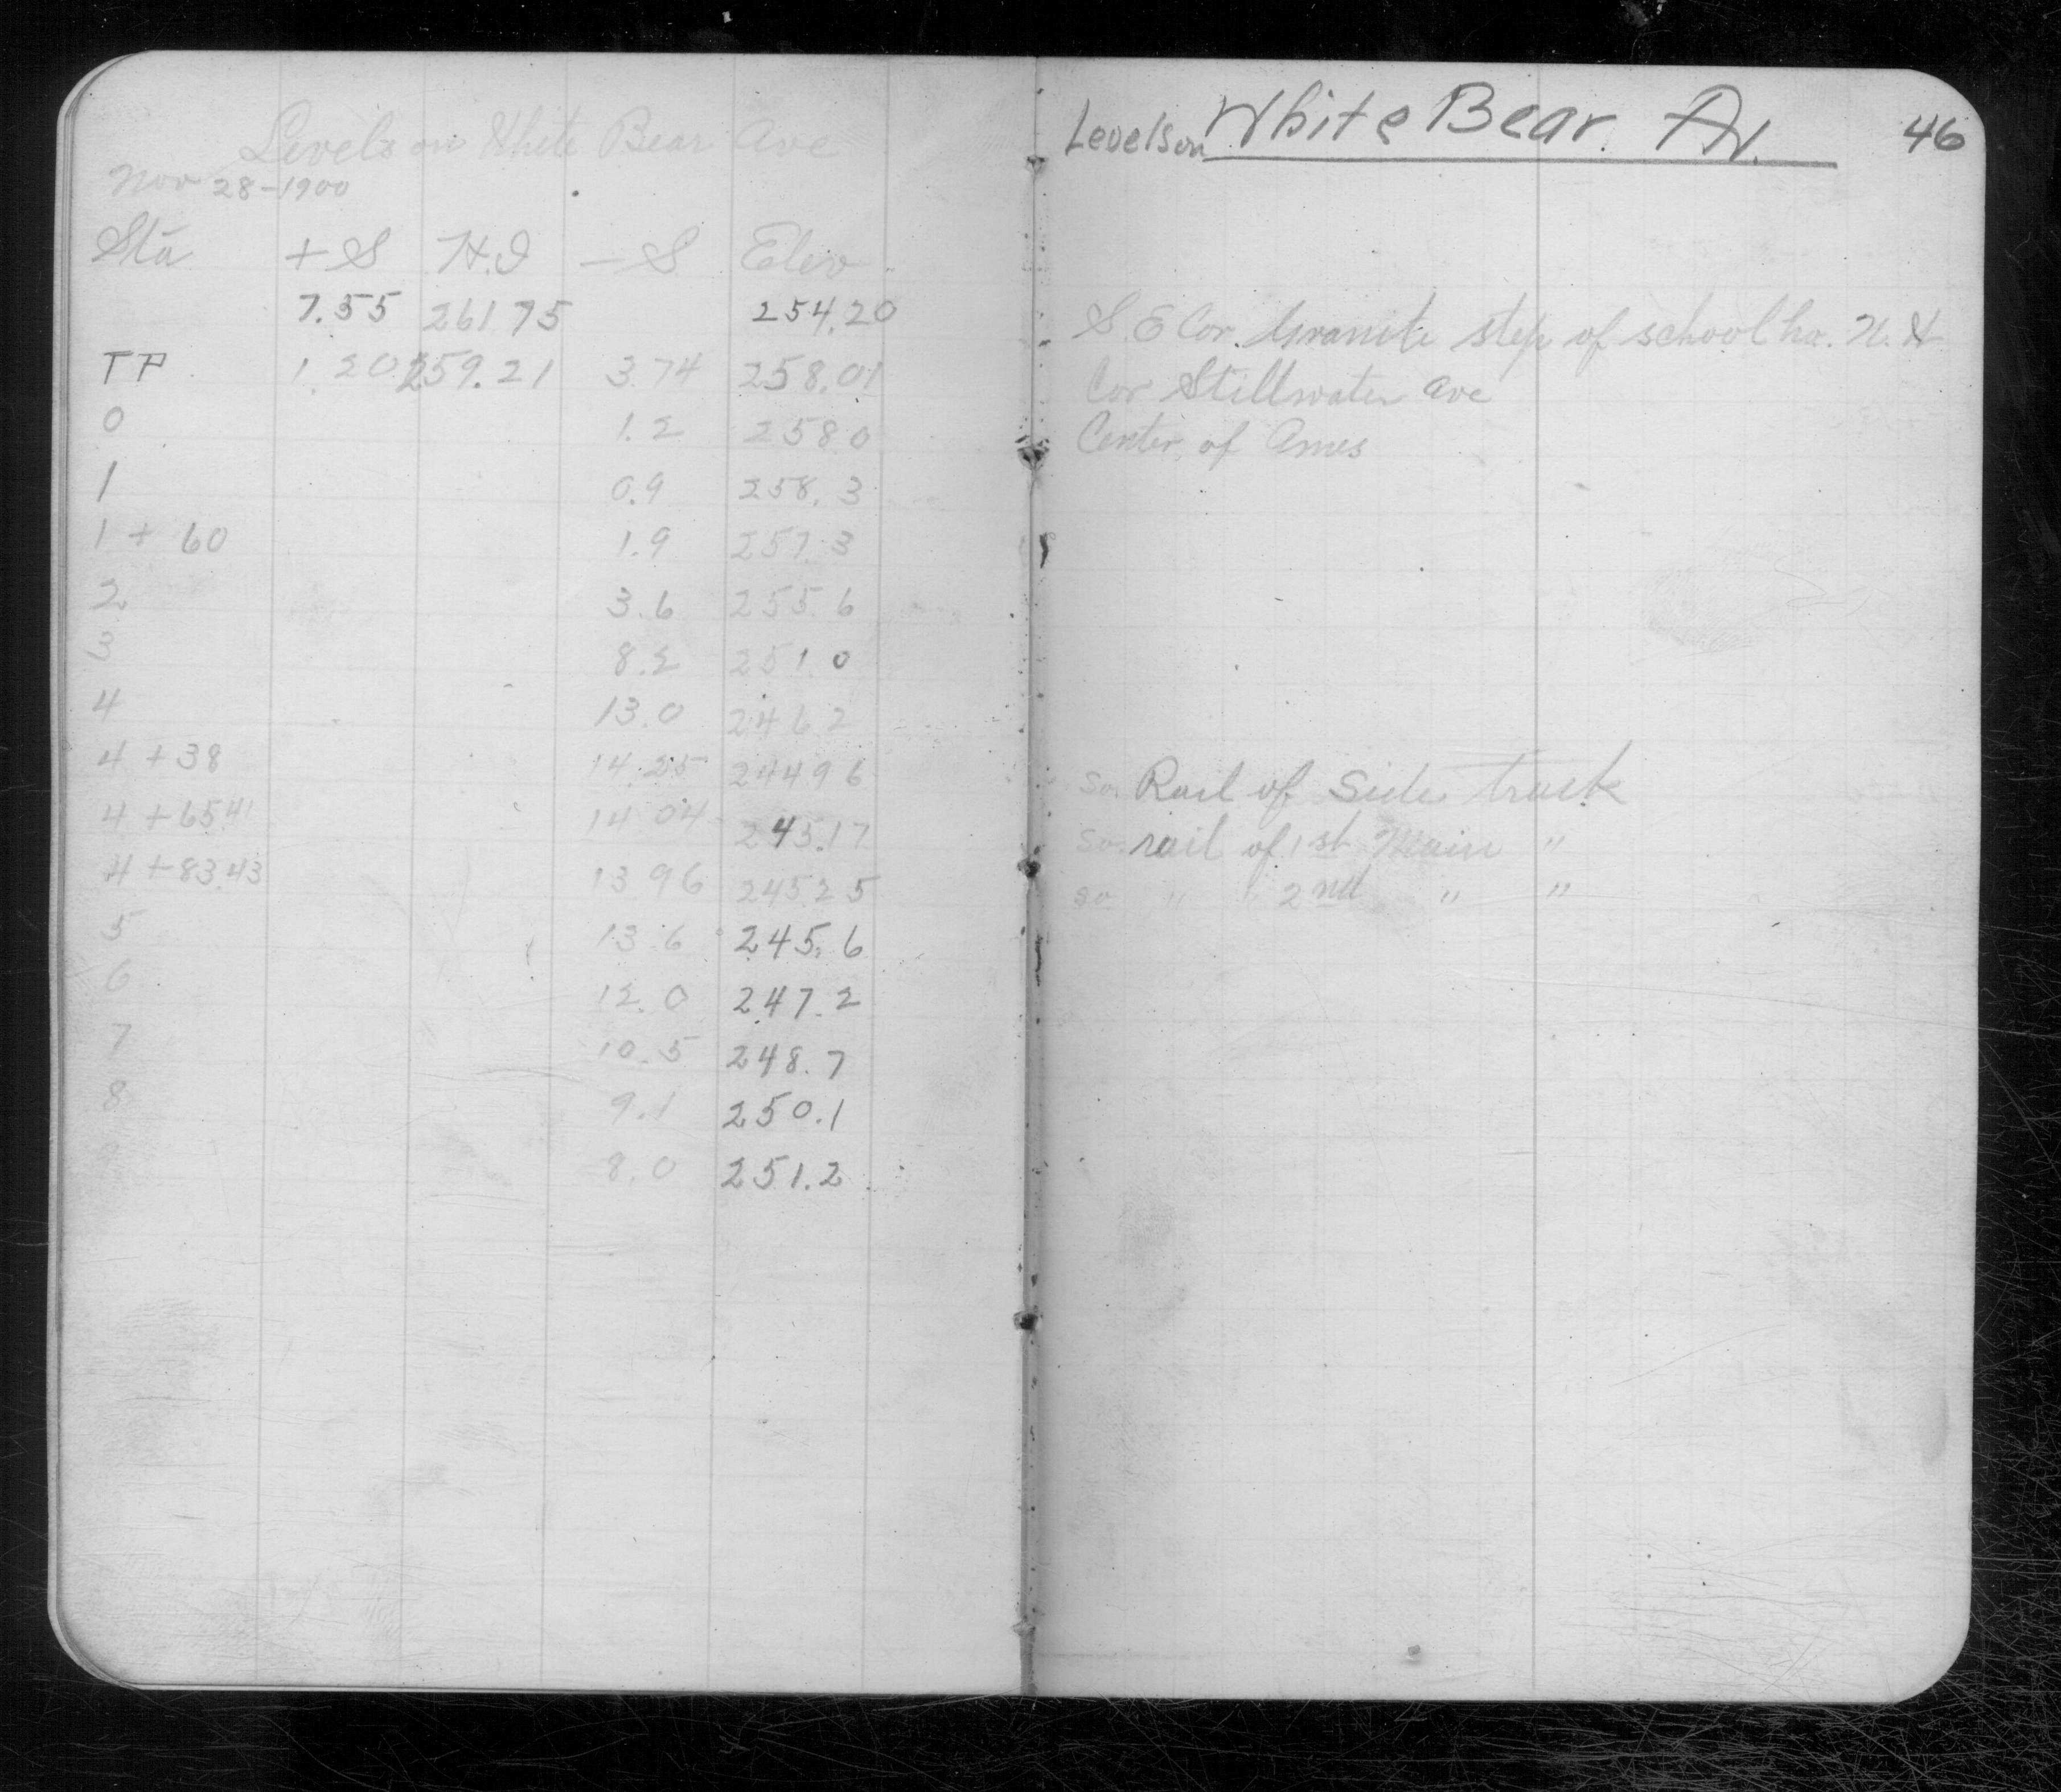 Levels on White Bear Ave
Nov 28-1900
Sta +S H.I -S Elev
7.55 261 75 254.20
TP 1.20 259.21 3.74 258.01
0 1.2 258 0
1 0.9 258.3
1 + 60 1.9 257.3
2 3.6 255.6
3 8.2 251.0
4 13.0 246 2
4 + 38 14.25 244 96
4 + 65.41 14 04 245.17
4 + 83.43 13 96 245.25
5 13.6 245.6
6 12.0 247.2
7 10.5 248.7
8 9.1 250.1
8.0 251.2
Levels on White Bear. Av. 46
S.E Cor. Granite step of school ho. N.
Cor Stillwater ave
Center of Ames
So. Rail of Side track
So. rail of 1st Main "
So " " 2nd " "